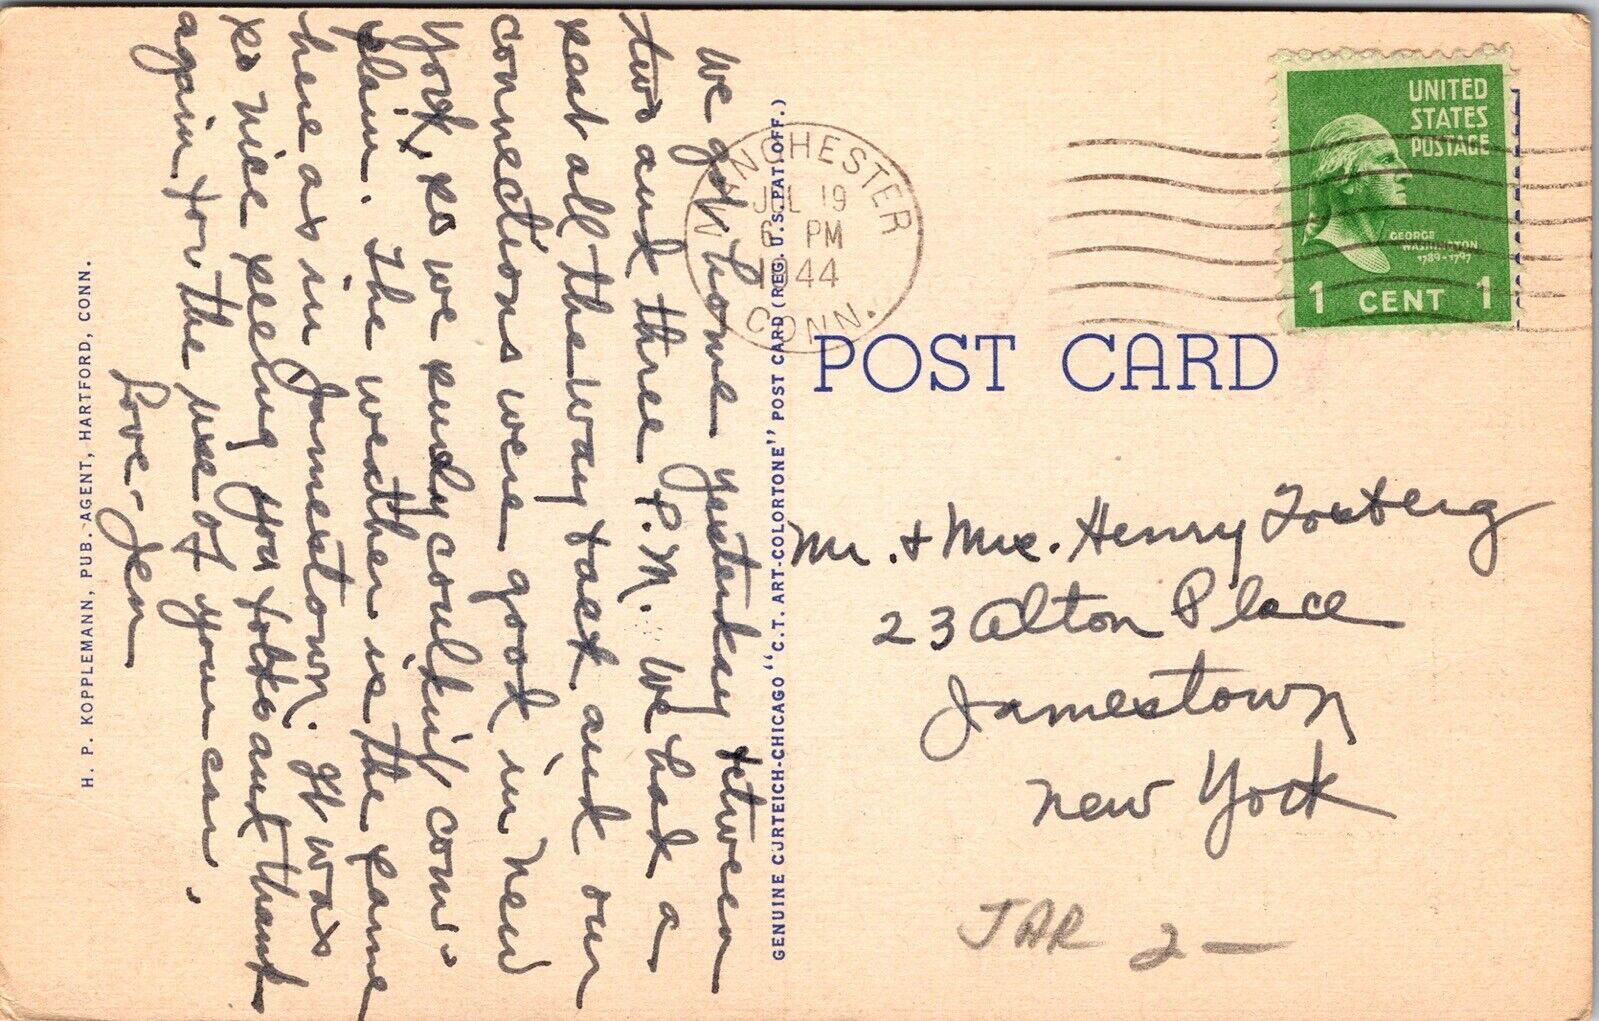 We got home yesterday between
two and three P.M. We had a
seat all the way back and our
connections were good in New
York, so we surely couldn't com-
plain. The weather is the same
here as in Jamestown. It was
so nice seeing you folks and thanks
again for the use of your car.
Love - Jen
H. P. KOPPLEMANN, PUB. AGENT, HARTFORD, CONN.
GENUINE CURTEICH-CHICAGO "C.T. ART-COLORTONE" POST CARD (REG. U.S. PAT. OFF.)
MANCHESTER
JUL 19
6 PM
1944
CONN.
UNITED
STATES
POSTAGE
GEORGE
WASHINGTON
1789-1797
1 CENT 1
POST CARD
Mr. & Mrs. Henry Fosberg
23 Alton Place
Jamestown
New York
JAR 2 —